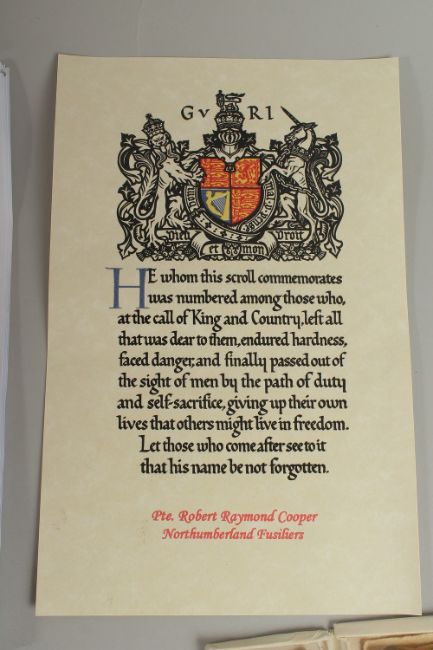 GV RI
Dieu et mon Droit
HE whom this scroll commemorates
was numbered among those who,
at the call of King and Country, left all
that was dear to them, endured hardness,
faced danger, and finally passed out of
the sight of men by the path of duty
and self-sacrifice, giving up their own
lives that others might live in freedom.
Let those who come after see to it
that his name be not forgotten.
Pte. Robert Raymond Cooper
Northumberland Fusiliers